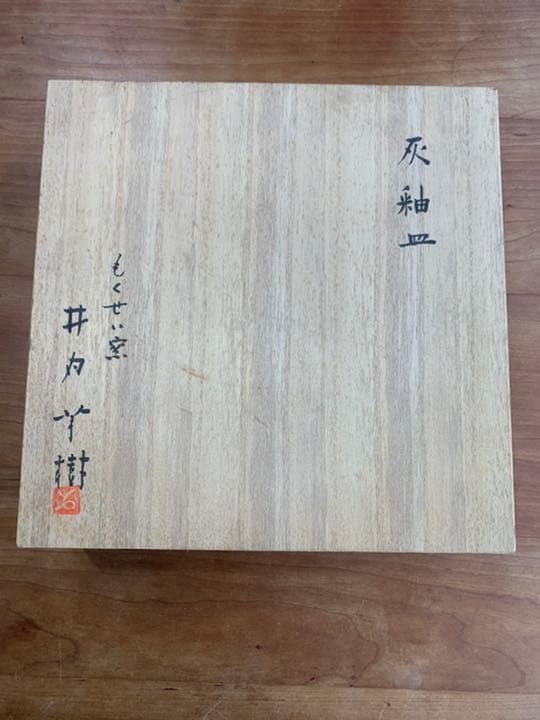 灰釉皿
もくせい窯
井内 樹